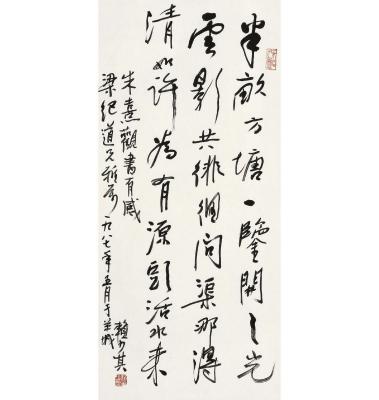 半畝方塘一鑒開天光
雲影共徘徊問渠那得
清如許為有源頭活水來
朱熹觀書有感
梁紀道兄雅屬一九八七年五月于羊城
賴少其